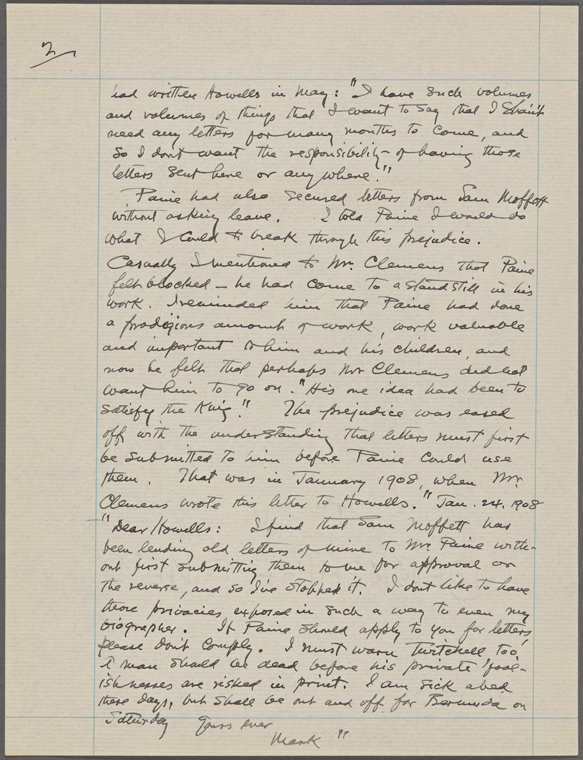 2
had written Howells in May: "I have such volumes
and volumes of things that I want to say that I shan't
need any letters for many months to come, and
so I don't want the responsibility of having those
letters sent here or anywhere."
Paine had also secured letters from Sam Moffett
without asking leave. I told Paine I would do
what I could to break through this prejudice.
Casually I mentioned to Mr. Clemens that Paine
felt blocked – he had come to a standstill in his
work. I reminded him that Paine had done
a prodigious amount of work, work valuable
and important to him and his children, and
now he felt that perhaps Mr Clemens did not
want him to go on. "His one idea had been to
satisfy the King." The prejudice was eased
off with the understanding that letters must first
be submitted to him before Paine could use
them. That was in January 1908, when Mr.
Clemens wrote this letter to Howells. "Jan. 24, 1908
"Dear Howells: I find that Sam Moffett has
been lending old letters of mine to Mr. Paine with-
out first submitting them to me for approval or
the reverse, and so I've stopped it. I don't like to have
those privacies exposed in such a way to even my
biographer. If Paine should apply to you for letters,
please don't comply. I must warn Twitchell too,
A man should be dead before his private 'fool-
ishnesses are risked in print. I am sick abed
these days, but shall be out and off for Bermuda on
Saturday Yours ever
Mark "